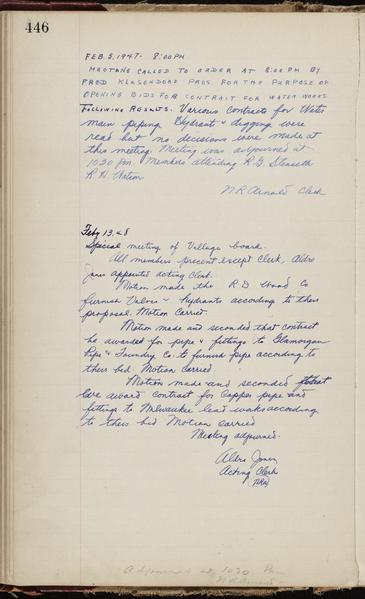 446
FEB. 5, 1947 - 8:00PM
MEETING CALLED TO ORDER AT 8:00 PM BY
FRED KLASENDORF PRES. FOR THE PURPOSE OF
OPENING BIDS FOR CONTRACT FOR WATER WORKS.
FOLLOWING RESULTS. Various contracts for Water
main piping Hydrant & digging were
read but no decisions were made at
this meeting. Meeting was adjourned at
1030 Pm. Members attending R.G.
R.H. Watson
N.R. Arnold Clerk
Feby 13, 48
Special meeting of Village board.
All members present except Clerk, Aldro
Jones appointed acting Clerk.
Motion made the R D Wood Co
furnish Valve & Hydrants according to their
proposal. Motion Carried.
Motion made and seconded that contract
be awarded for pipe & fittings to Glamorgan
Pipe & Foundry Co. to furnish pipe according to
their bid. Motion Carried.
Motion made and seconded that
we award contract for Copper pipe and
fittings to Milwaukee lead works according
to their bid Motion Carried
Meeting adjourned.
Aldro Jones
Acting Clerk
NRA
Adjourned at 1030 Pm
N R Arnold